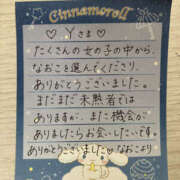 Cinnamoroll
♡ Yさま ♡
たくさんの女の子の中から、
なおこを選んでくださり、
ありがとうございました。
まだまだ未熟者では
ありますが、また機会が
ありましたらお会いしたいです。
ありがとうございました♡なおこより